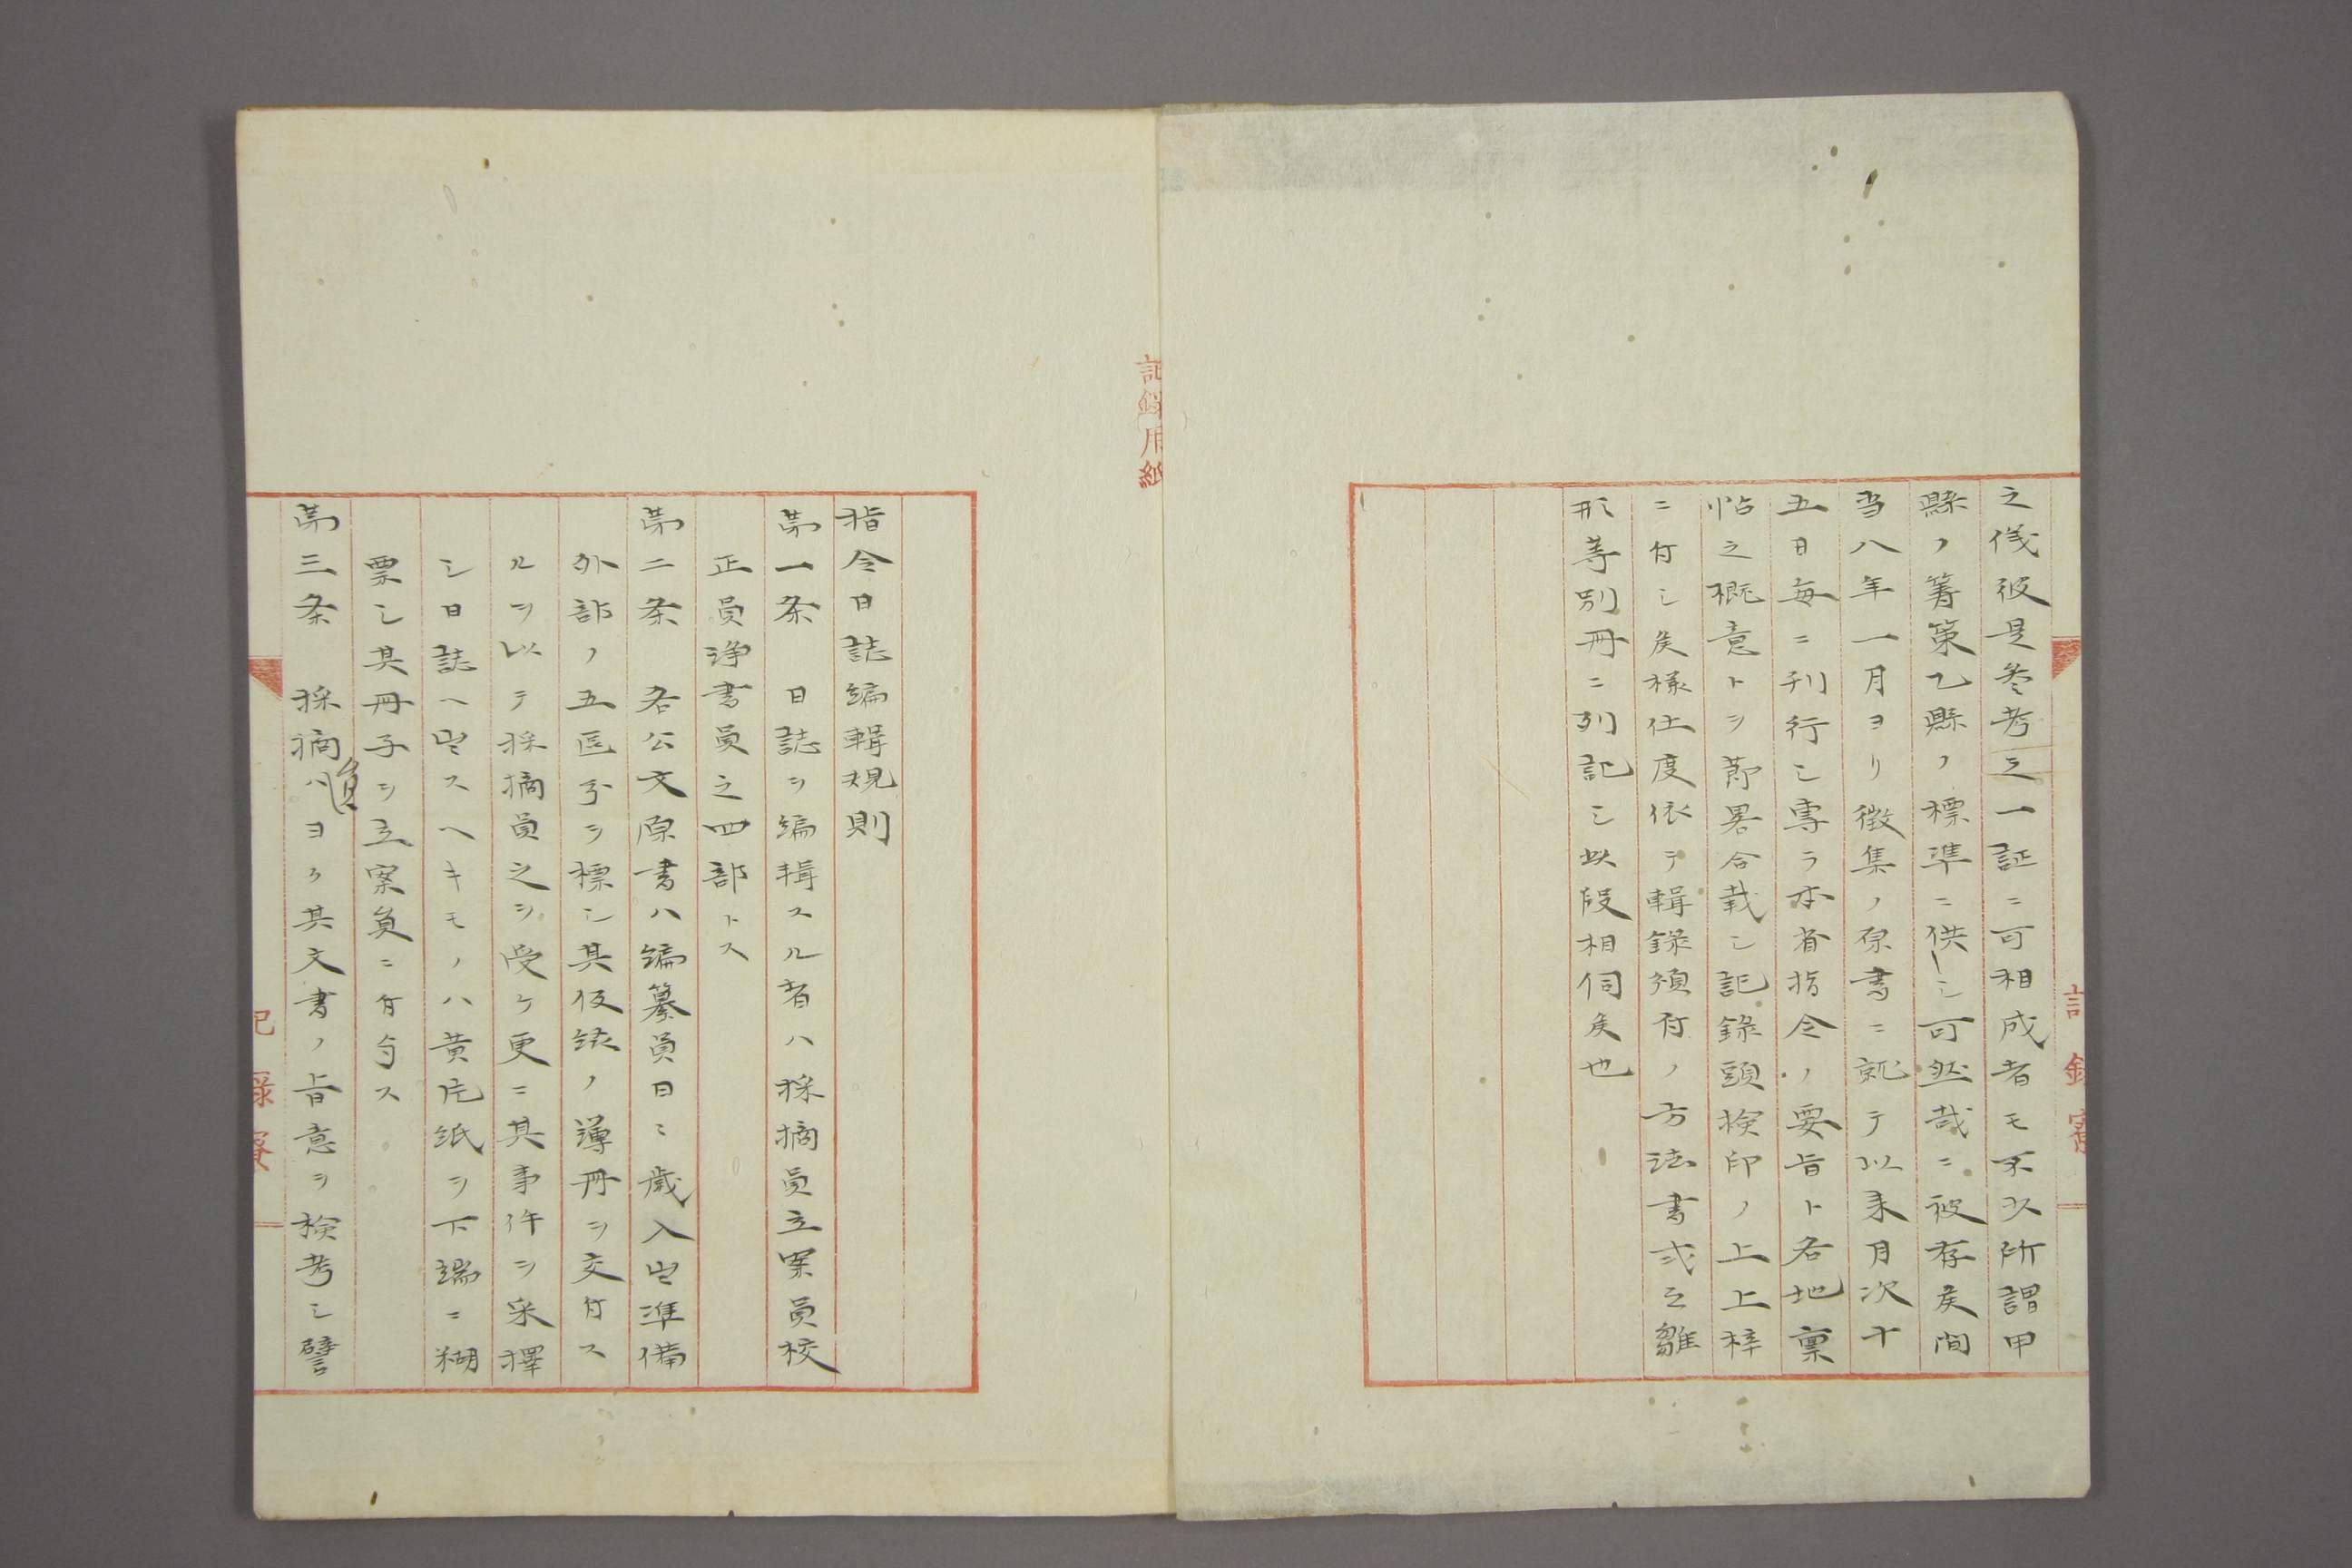 之儀彼是参考之一証ニ可相成者モ不少所謂甲
縣ノ籌策乙縣ノ標準ニ供シ可然哉ニ被存候間
当八年一月ヨリ徴集ノ原書ニ就テ以来月次十
五日毎ニ刊行シ専ラ本省指令ノ要旨ト各地稟
帖之概意トヲ節畧合載シ記錄頭検印ノ上上梓
ニ付シ候様仕度依テ輯錄頒付ノ方法書式之雛
形等別冊ニ列記シ此段相伺候也
記錄寮
記録用紙
指令日誌編輯規則
第一条　日誌ヲ編輯スル者ハ採摘員立案員校
正員浄書員之四部トス
第二条　各公文原書ハ編纂員日ニ歳入出準備
外部ノ五区分ヲ標シ其仮綴ノ簿冊ヲ交付ス
ルヲ以テ採摘員之ヲ受ケ更ニ其事件ヲ采擇
シ日誌ヘ出スヘキモノハ黄片紙ヲ下端ニ糊
票シ其冊子ヲ立案員ニ付与ス
第三条　採摘員ハヨク其文書ノ旨意ヲ検考シ譬
記錄寮